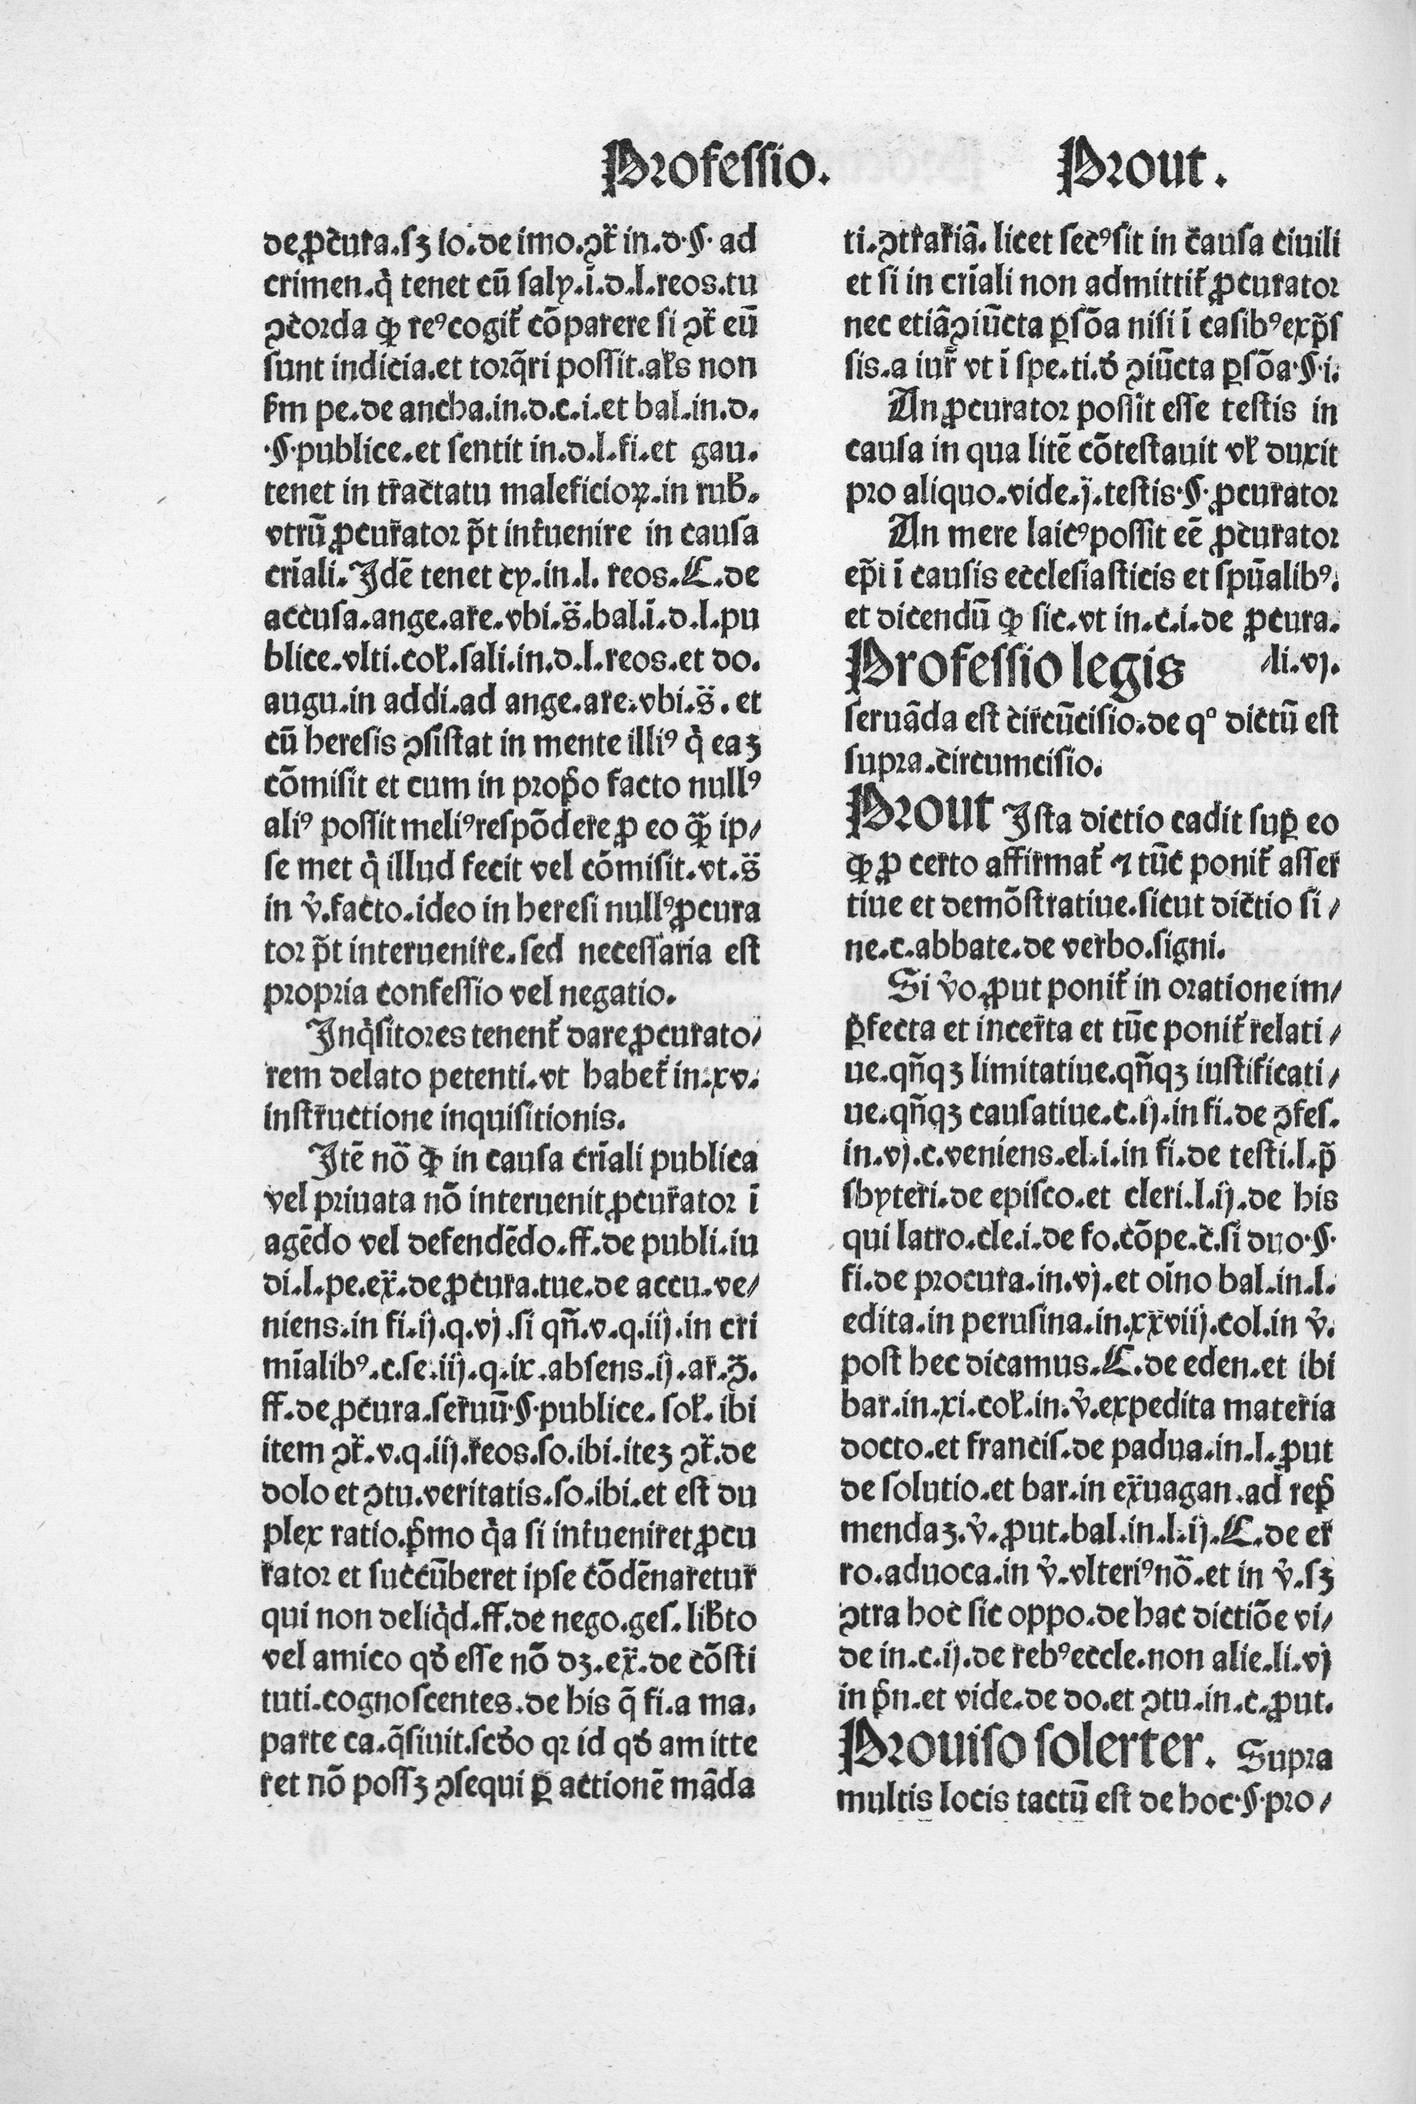 Professio.
Prout.
de ꝓcura.sꝫ io.de imo.ꝯt̃ in.d.§. ad
crimen.q̇ tenet cū saly.ī.d.l.reos.tu
ꝯcorda ꝙ reꝰcogit̃ cōparere si ꝯt̃ eū
sunt indicia.et torq̄ri possit.al̓s non
ẜm pe.de ancha.in.d.c.i.et bal.in.d.
.§.publice.et sentit in.d.l.fi.et gau.
tenet in tractatu maleficioꝝ.in rub̓.
vtrū ꝓcurator p̄t int̓uenire in causa
cr̄iali.Idē tenet cy.in.l. reos.C.de
accusa.ange.are.vbi.s̄.bal.ī.d.l.pu
blice.vlti.col̓.sali.in.d.l.reos.et do.
augu.in addi.ad ange.are.vbi.s̄. et
cū heresis ꝯsistat in mente illiꝰ q̇ eaꝫ
cōmisit et cum in prop̓o facto nullꝰ
aliꝰ possit meliꝰrespōdere ꝓ eo ꝙ̄ ip/
se met q̇ illud fecit vel cōmisit.vt.s̄
in v̓.facto.ideo in heresi nullꝰꝓcura
tor p̄t interuenire.sed necessaria est
propria confessio vel negatio.
Inq̇sitores tenent̃ dare ꝓcurato/
rem delato petenti.vt habet̃ in.xv.
instructione inquisitionis.
Itē nō ꝙ in causa cr̄iali publica
vel priuata nō interuenit ꝓcurator ī
agēdo vel defendēdo.ff.de publi.iu
di.l.pe.ex̄.de ꝓcura.tue.de accu.ve/
niens.in fi.ij.q.vj.si qn̄.v.q.iij.in cri
mīalibꝰ.c.se.iij.q.ix.absens.ij.ar.ꝫ.
ff.de ꝓcura.seruū.§.publice. sol̓. ibi
item ꝯt̃.v.q.iij.reos.so.ibi.iteꝫ ꝯt̃.de
dolo et ꝯtu.veritatis.so.ibi.et est du
plex ratio.p̓mo q̇a si int̓ueniret ꝓcu
rator et succūberet ipse cōdēnaretur
qui non deliq̇d.ff.de nego.ges.lib̓to
vel amico qd̓ esse nō dꝫ.ex̄.de cōsti
tuti.cognoscentes.de his q̄ fi.a ma.
parte ca.q̄siuit.scd̓o qꝛ id qd̓ amitte
ret nō possꝫ ꝯsequi ꝑ actionē māda
ti.ꝯtrariā. licet secꝰsit in causa ciuili
et si in cr̄iali non admittit̃ ꝓcurator
nec etiā ꝯiūcta ꝑsōa nisi ī casibꝰexp̄s
sis.a iur̓ vt ī spe.ti.d̓ ꝯiūcta ꝑsōa.§.i.
An ꝓcurator possit esse testis in
causa in qua litē cōtestauit vl̓ duxit
pro aliquo.vide.j̄.testis.§.ꝓcurator
An mere laicꝰpossit eē ꝓcurator
ep̄i ī causis ecclesiasticis et spūalibꝰ.
et dicendū ꝙ sic.vt in.c.i.de ꝓcura.
Professio legis /li.vj.
seruāda est circūcisio.de qº dictū est
supra.circumcisio.
Prout Ista dictio cadit suꝑ eo
ꝙ ꝓ certo affirmat̃ ⁊ tūc ponit̃ asser
tiue et demōstratiue.sicut dictio si/
ne.c.abbate.de verbo.signi.
Si v̓o.ꝓut ponit̃ in oratione im/
ꝑfecta et incerta et tūc ponit̃ relati/
ue.qn̄qꝫ limitatiue.qn̄qꝫ iustificati/
ue.qn̄qꝫ causatiue.c.ij.in fi.de ꝯfes.
in.vj.c.veniens.el.i.in fi.de testi.l.p̄
sbyteri.de episco.et cleri.l.ij.de his
qui latro.cle.i.de fo.cōpe.c̄.si duo.§.
fi.de procura.in.vj.et oīno bal.in.l.
edita.in perusina.in.xxviij.col.in v̓.
post hec dicamus.C.de eden.et ibi
bar.in.xi.col̓.in.v̓.expedita materia
docto.et francis.de padua.in.l.ꝓut
de solutio.et bar.in ex̄uagan.ad rep̓
mendaꝫ.v̓.ꝓut.bal.in.l.ij.C.de er
ro.aduoca.in v̓.vlteriꝰnō.et in v̓.sꝫ
ꝯtra hoc sic oppo.de hac dictiōe vi/
de in.c.ij.de rebꝰeccle.non alie.li.vj
in p̓n.et vide.de do.et ꝯtu.in.c.ꝓut.
Prouiso solerter. Supra
multis locis tactū est de hoc.§.pro/